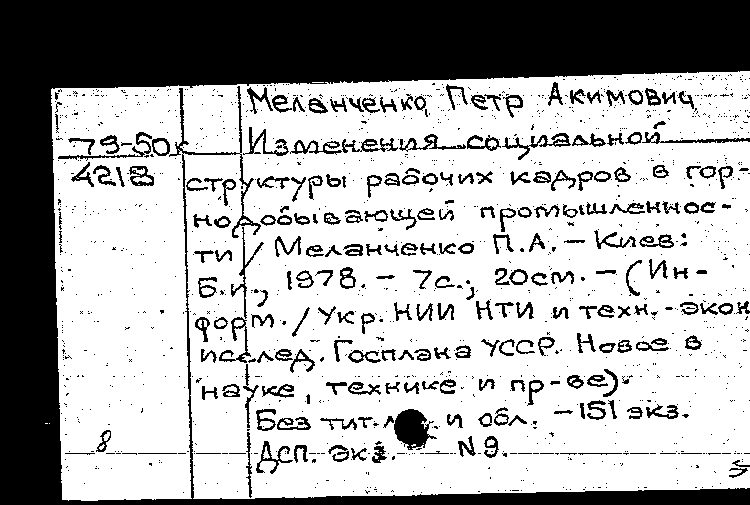 Меланченко Петр Акимович
79-50к Изменения социальной
4218 структуры рабочих кадров в гор-
нодобывающей промышленнос-
ти / Меланченко П.А. – Киев:
Б.и., 1978. – 7с.; 20см. – (Ин-
форм. / Укр. НИИ НТИ и техн.-экон
исслед. Госплана УССР. Новое в
науке, технике и пр-ве).
Без тит. и обл. – 151 экз.
8 Дсп. экз. N9.